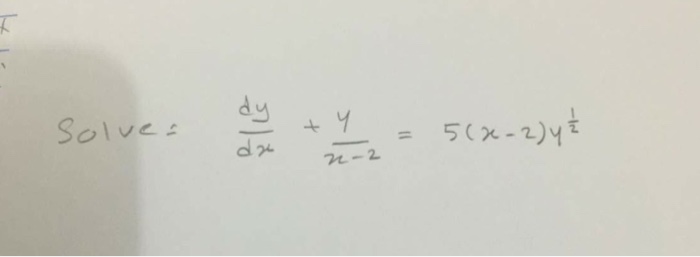 Solve: dy/dx + y/(x-2) = 5(x-2)y^(1/2)